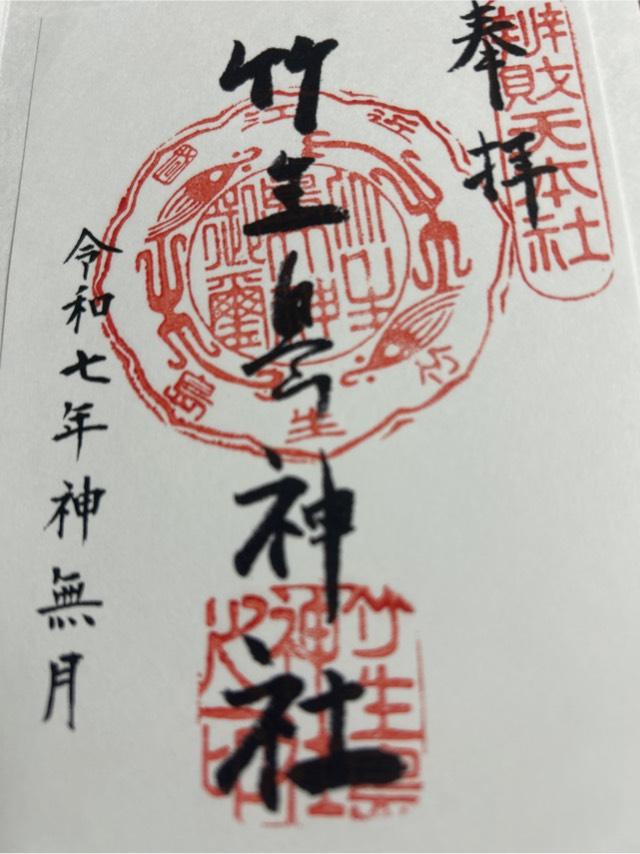 辨財天本社
奉拝
竹生島神社
令和七年神無月
近江國竹生島
竹生島
神社
之印